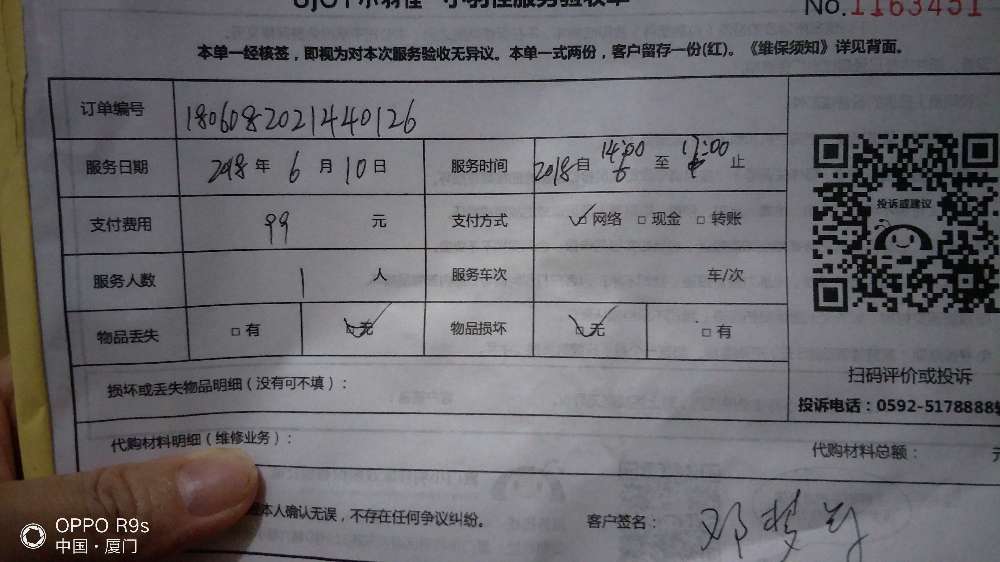 UJOY小羽佳 小羽佳服务验收单 No.1163451
本单一经核签，即视为对本次服务验收无异议。本单一式两份，客户留存一份(红)。《维保须知》详见背面。
订单编号 1806082021440126
服务日期 2018 年 6 月 10 日 服务时间 2018 自 14:00 至 17:00 止
支付费用 99 元 支付方式 ☑网络 □现金 □转账
服务人数 1 人 服务车次 车/次
物品丢失 □有 ☑无 物品损坏 ☑无 □有
投诉或建议
损坏或丢失物品明细（没有可不填）：
扫码评价或投诉
投诉电话：0592-5178888
代购材料明细（维修业务）： 代购材料总额： 元
本人确认无误，不存在任何争议纠纷。 客户签名： 邓梦
OPPO R9s
中国·厦门